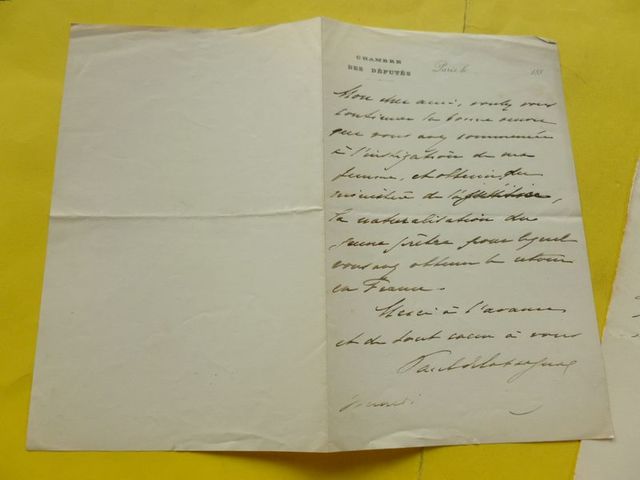 CHAMBRE
DES DÉPUTÉS
Paris le 188
Mon cher ami, voulez vous
continuer la bonne œuvre
que vous avez commencée
à l'instigation de ma
femme, et obtenir, du
ministère de la justice,
la naturalisation du
jeune prêtre pour lequel
vous avez obtenu le retour
en France.
Merci à l'avance
et de tout cœur à vous
Paul de Cassagnac